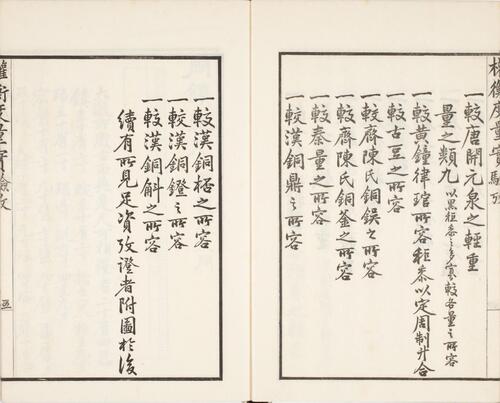 權衡度量實驗攷
一較唐開元泉之輕重
量之類九以黑秬黍之多寡較各量之所容
一較黃鐘律琯所容秬黍以定周制升合
一較古豆之所容
一較齋陳氏銅鋘之所容
一較齋陳氏銅釜之所容
一較秦量之所容
一較漢銅鼎之所容
一較漢銅梧之所容
一較漢銅鐙之所容
一較漢銅斛之所容
續有所見足資攷證者附圖於後
權衡度量實驗攷
五